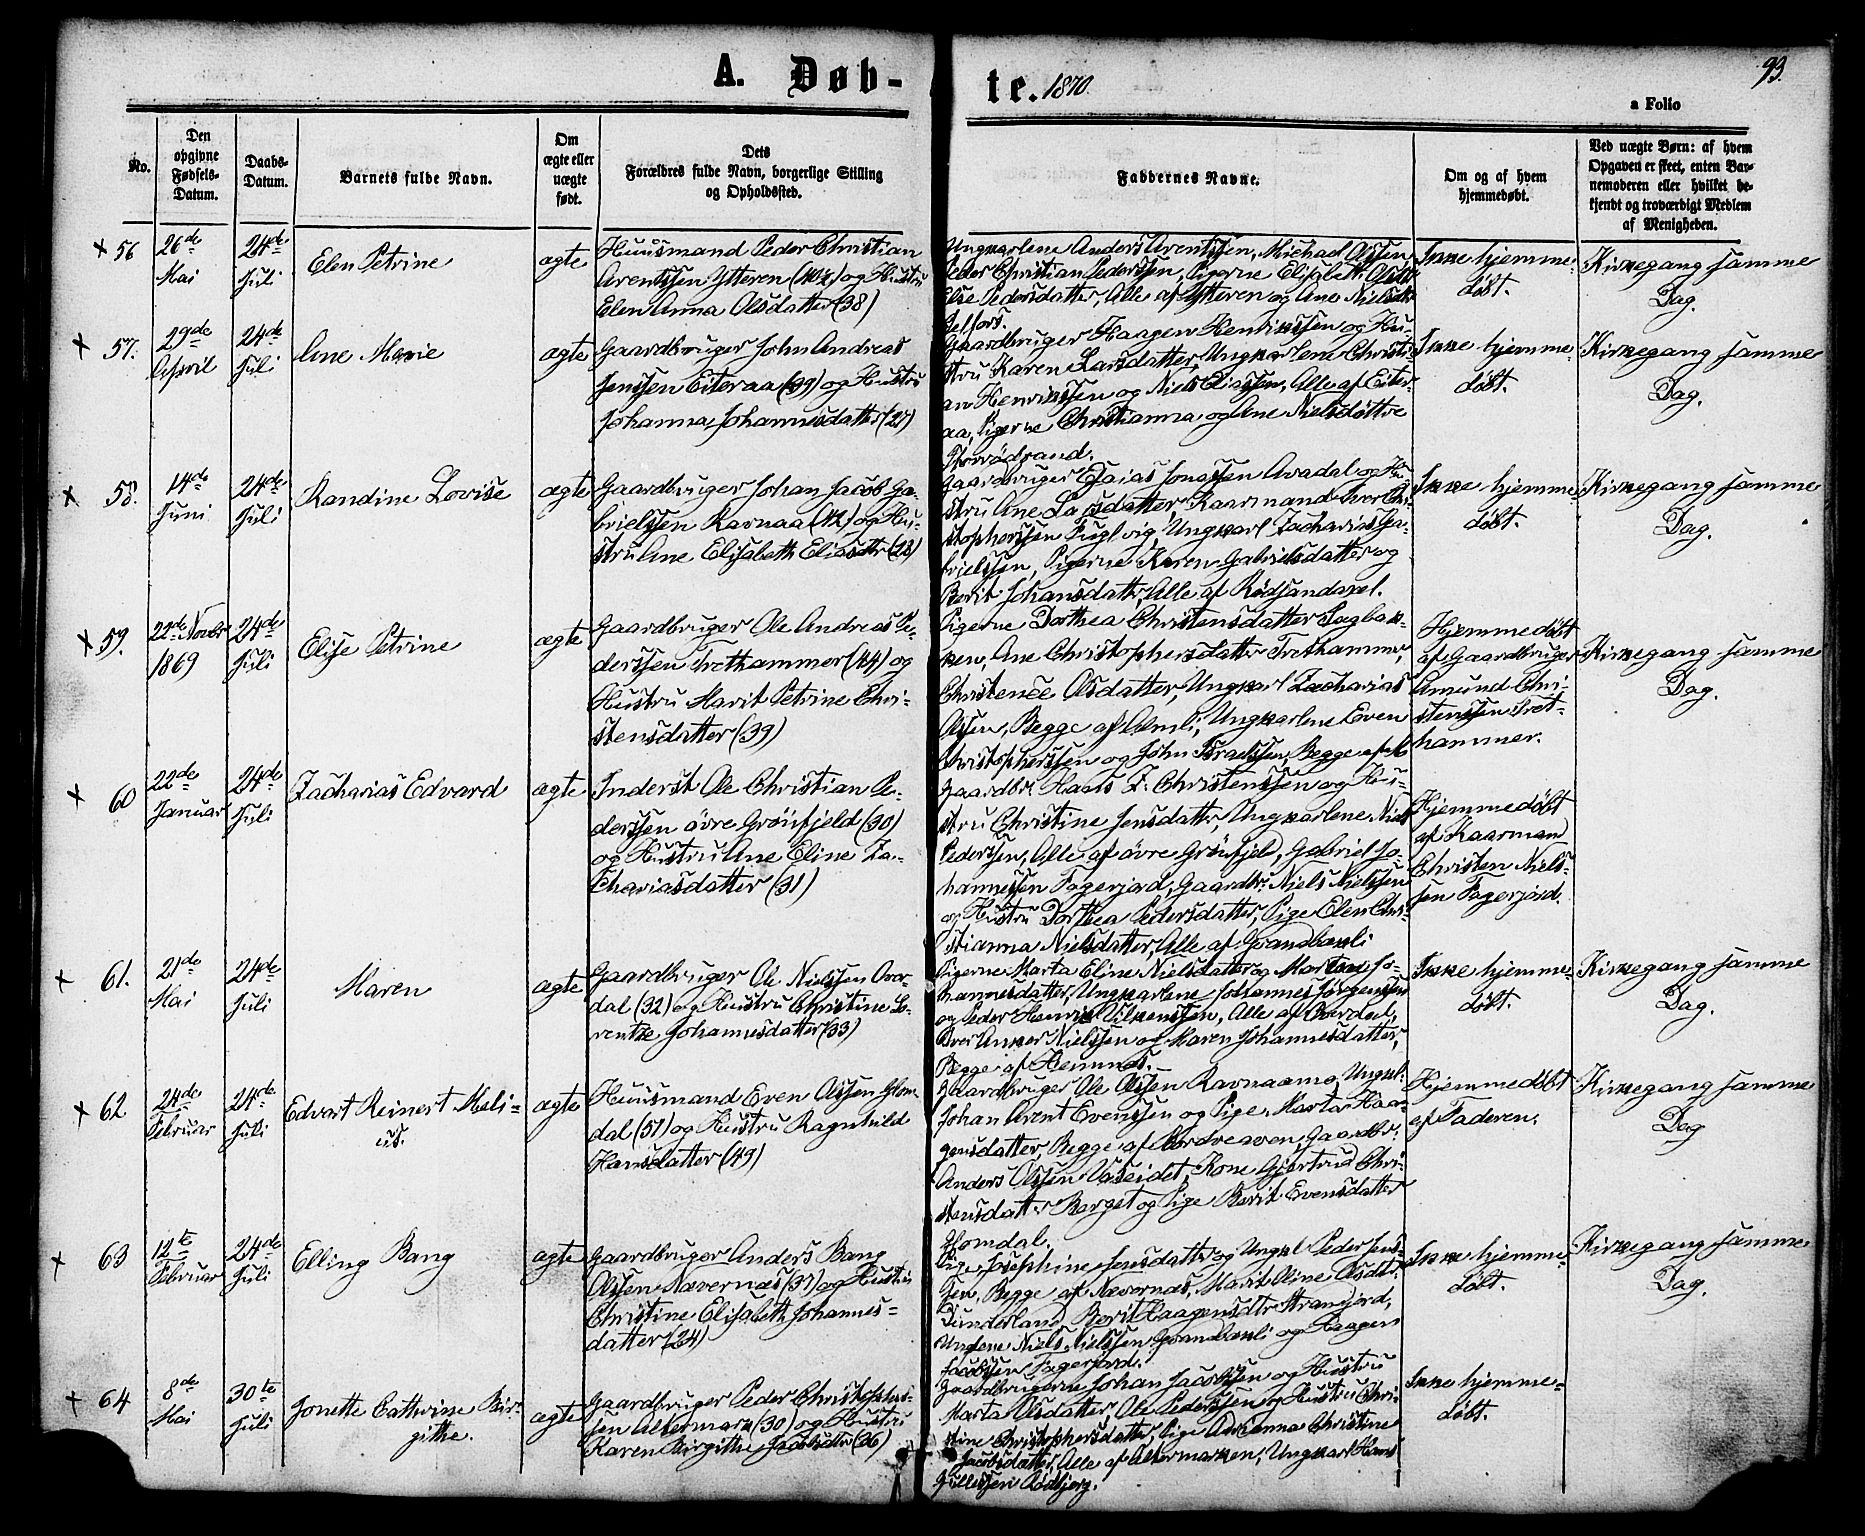 A. Døb- te. 1870.
93.
a Folio
No.
Den
opgivne
Fødsels-
Datum.
Daabs-
Datum.
Barnets fulde Navn.
Om
ægte eller
uægte
født.
Dets
Forældres fulde Navn, borgerlige Stilling
og Opholdssted.
Faddernes Navne.
Om og af hvem
hjemmedøbt.
Ved uægte Børn: af hvem
Opgaven er skeet, enten Bar-
nemoderen eller hvilket be-
kjendt og troværdigt Medlem
af Menigheden.
56
26de
Mai
24de
Juli
Elen Petrine
ægte
Huusmand Peder Christian
Arentssen Ytteren (40½) og Hustru
Elen Anna Olsdatter (38)
Ungkarlene Anders Arentssen, Michael Olssen,
Peder Christian Pederssen, Pigerne Elisabeth Olsdtr
Else Pedersdatter, Alle af Ytteren og Ane Nielsdtr
Selfors.
Ikke hjemme-
døbt.
Kirkegang samme
Dag.
57.
29de
April
24de
Juli
Ane Marie
ægte
Gaardbruger John Andreas
Jenssen Eiteraa (39) og Hustru
Johanna Johannesdatter (27)
Gaardbruger Haagen Henrikssen og Hu-
stru Karen Larsdatter, Ungkarlene Christi-
an Henrikssen og Niels Eliassen, Alle af Eiter-
aa, Pigerne Christianna og Ane Nielsdøttre
Ikke hjemme-
døbt.
Kirkegang samme
Dag.
58.
14de
Juni
24de
Juli
Randine Lovise
ægte
Gaardbruger Johan Jacob Ga-
brielssen Ravnaa (42) og Hu-
stru Ane Elisabeth Eliasdtr (28)
Gaardbruger Esaias Jonassen Avadal og Hu-
stru Ane Larsdatter, Kaarmand Iver Chri-
stopherssen Fuglvig, Ungkarl Zacharias Ga-
brielssen, Pigerne Karen Gabrielsdatter og
Berit Johansdatter, Alle af Rødsandaxel.
Ikke hjemme-
døbt.
Kirkegang samme
Dag.
59.
22de Novbr
1869
24de
Juli
Elise Petrine
ægte
Gaardbruger Ole Andreas Pe-
derssen Trethammer (44) og
Hustru Marit Petrine Chri-
stensdatter (39)
Pigerne Dorthea Christensdatter Sagbak-
ken, Ane Christophersdatter Trethammer,
Christence Olsdatter, Ungkarl Zacharias
Olssen, Begge af Almli, Ungkarlene Even
Christopherssen og John Israelssen, Begge af
Hjemmedøbt
af Gaardbruger
Amund Chri-
stenssen Tret-
hammer.
Kirkegang samme
Dag.
60
22de
Januar
24de
Juli
Zacharias Edvard
ægte
Inderst Ole Christian Pe-
derssen øvre Grønfjeld (30)
og Hustru Ane Eline Za-
chariasdatter (31)
Gaardbr. Hans Z. Christenssen og Hu-
stru Christine Jensdatter, Ungkarlene Niels
Pederssen, Alle af øvre Grønfjeld, Gabriel Jo-
hannessen Fagerjord, Gaardbr. Niels Nielssen
og Hustru Dorthea Pedersdatter, Pige Elen Chri-
stianna Nielsdatter, Alle af Grandbakli
Hjemmedøbt
af Kaarmand
Christen Niels-
sen Fagerjord.
61.
21de
Mai
24de
Juli
Maren
ægte
Gaardbruger Ole Nielssen Over-
dal (32) og Hustru Christine Lo-
rentze Johannesdatter (33)
Pigerne Marta Eline Nielsdatter og Martea Jo-
hannesdatter, Ungkarlene Johannes Jørgenssen
og Peder Henrik Filkenssen, Alle af Overdal,
Iver Anker Nielssen og Maren Johannesdatter,
Begge af Hemnæs.
Ikke hjemme-
døbt.
Kirkegang samme
Dag.
62
24de
Februar
24de
Juli
Edvart Reinert Meli-
us.
ægte
Huusmand Even Olssen Glom-
dal (51) og Hustru Ragnhild
Hansdatter (49)
Gaardbruger Ole Olssen Ravnaamo, Ungk.
Johan Arent Evenssen og Pige Marta Haa-
gensdatter, Begge af Nordreaven, Gaardbr.
Anders Olssen Valseidet, Kone Gjertrud Chri-
stensdatter Berget og Pige Berit Evensdatter
Glomdal.
Hjemmedøbt
af Faderen.
Kirkegang samme
Dag
63
12te
Februar
24de
Juli
Elling Bang
ægte
Gaardbruger Anders Bang
Olssen Nævernæs (37) og Hustru
Christine Elisabeth Johannes-
datter (24)
Pige Josephine Jensdatter og Ungk. Peder Jens-
sen, Begge af Nævernæs, Marit Oline Olsdtr
Dunderland, Berit Haagensdtr Strandjord,
Ungkne Niels Nielssen Grandbakli og Haagen
Jacobssen Fagerjord.
Ikke hjemme-
døbt.
Kirkegang samme
Dag.
64
8de
Mai
30te
Juli
Jonette Cathrine Bir-
githe.
ægte
Gaardbruger Peder Christophers-
sen Altermark (30) og Hustru
Karen Birgithe Jacobsdtr (26)
Gaardbrugerne Johan Jacobssen og Hustru
Marta Olsdatter, Ole Pederssen og Hustru Chri-
stine Christophersdatter, Pige Arianna Christine
Jacobsdatter, Alle af Altermarken, Ungkarl Hans
Gullessen Rødbjerg.
Ikke hjemme-
døbt.